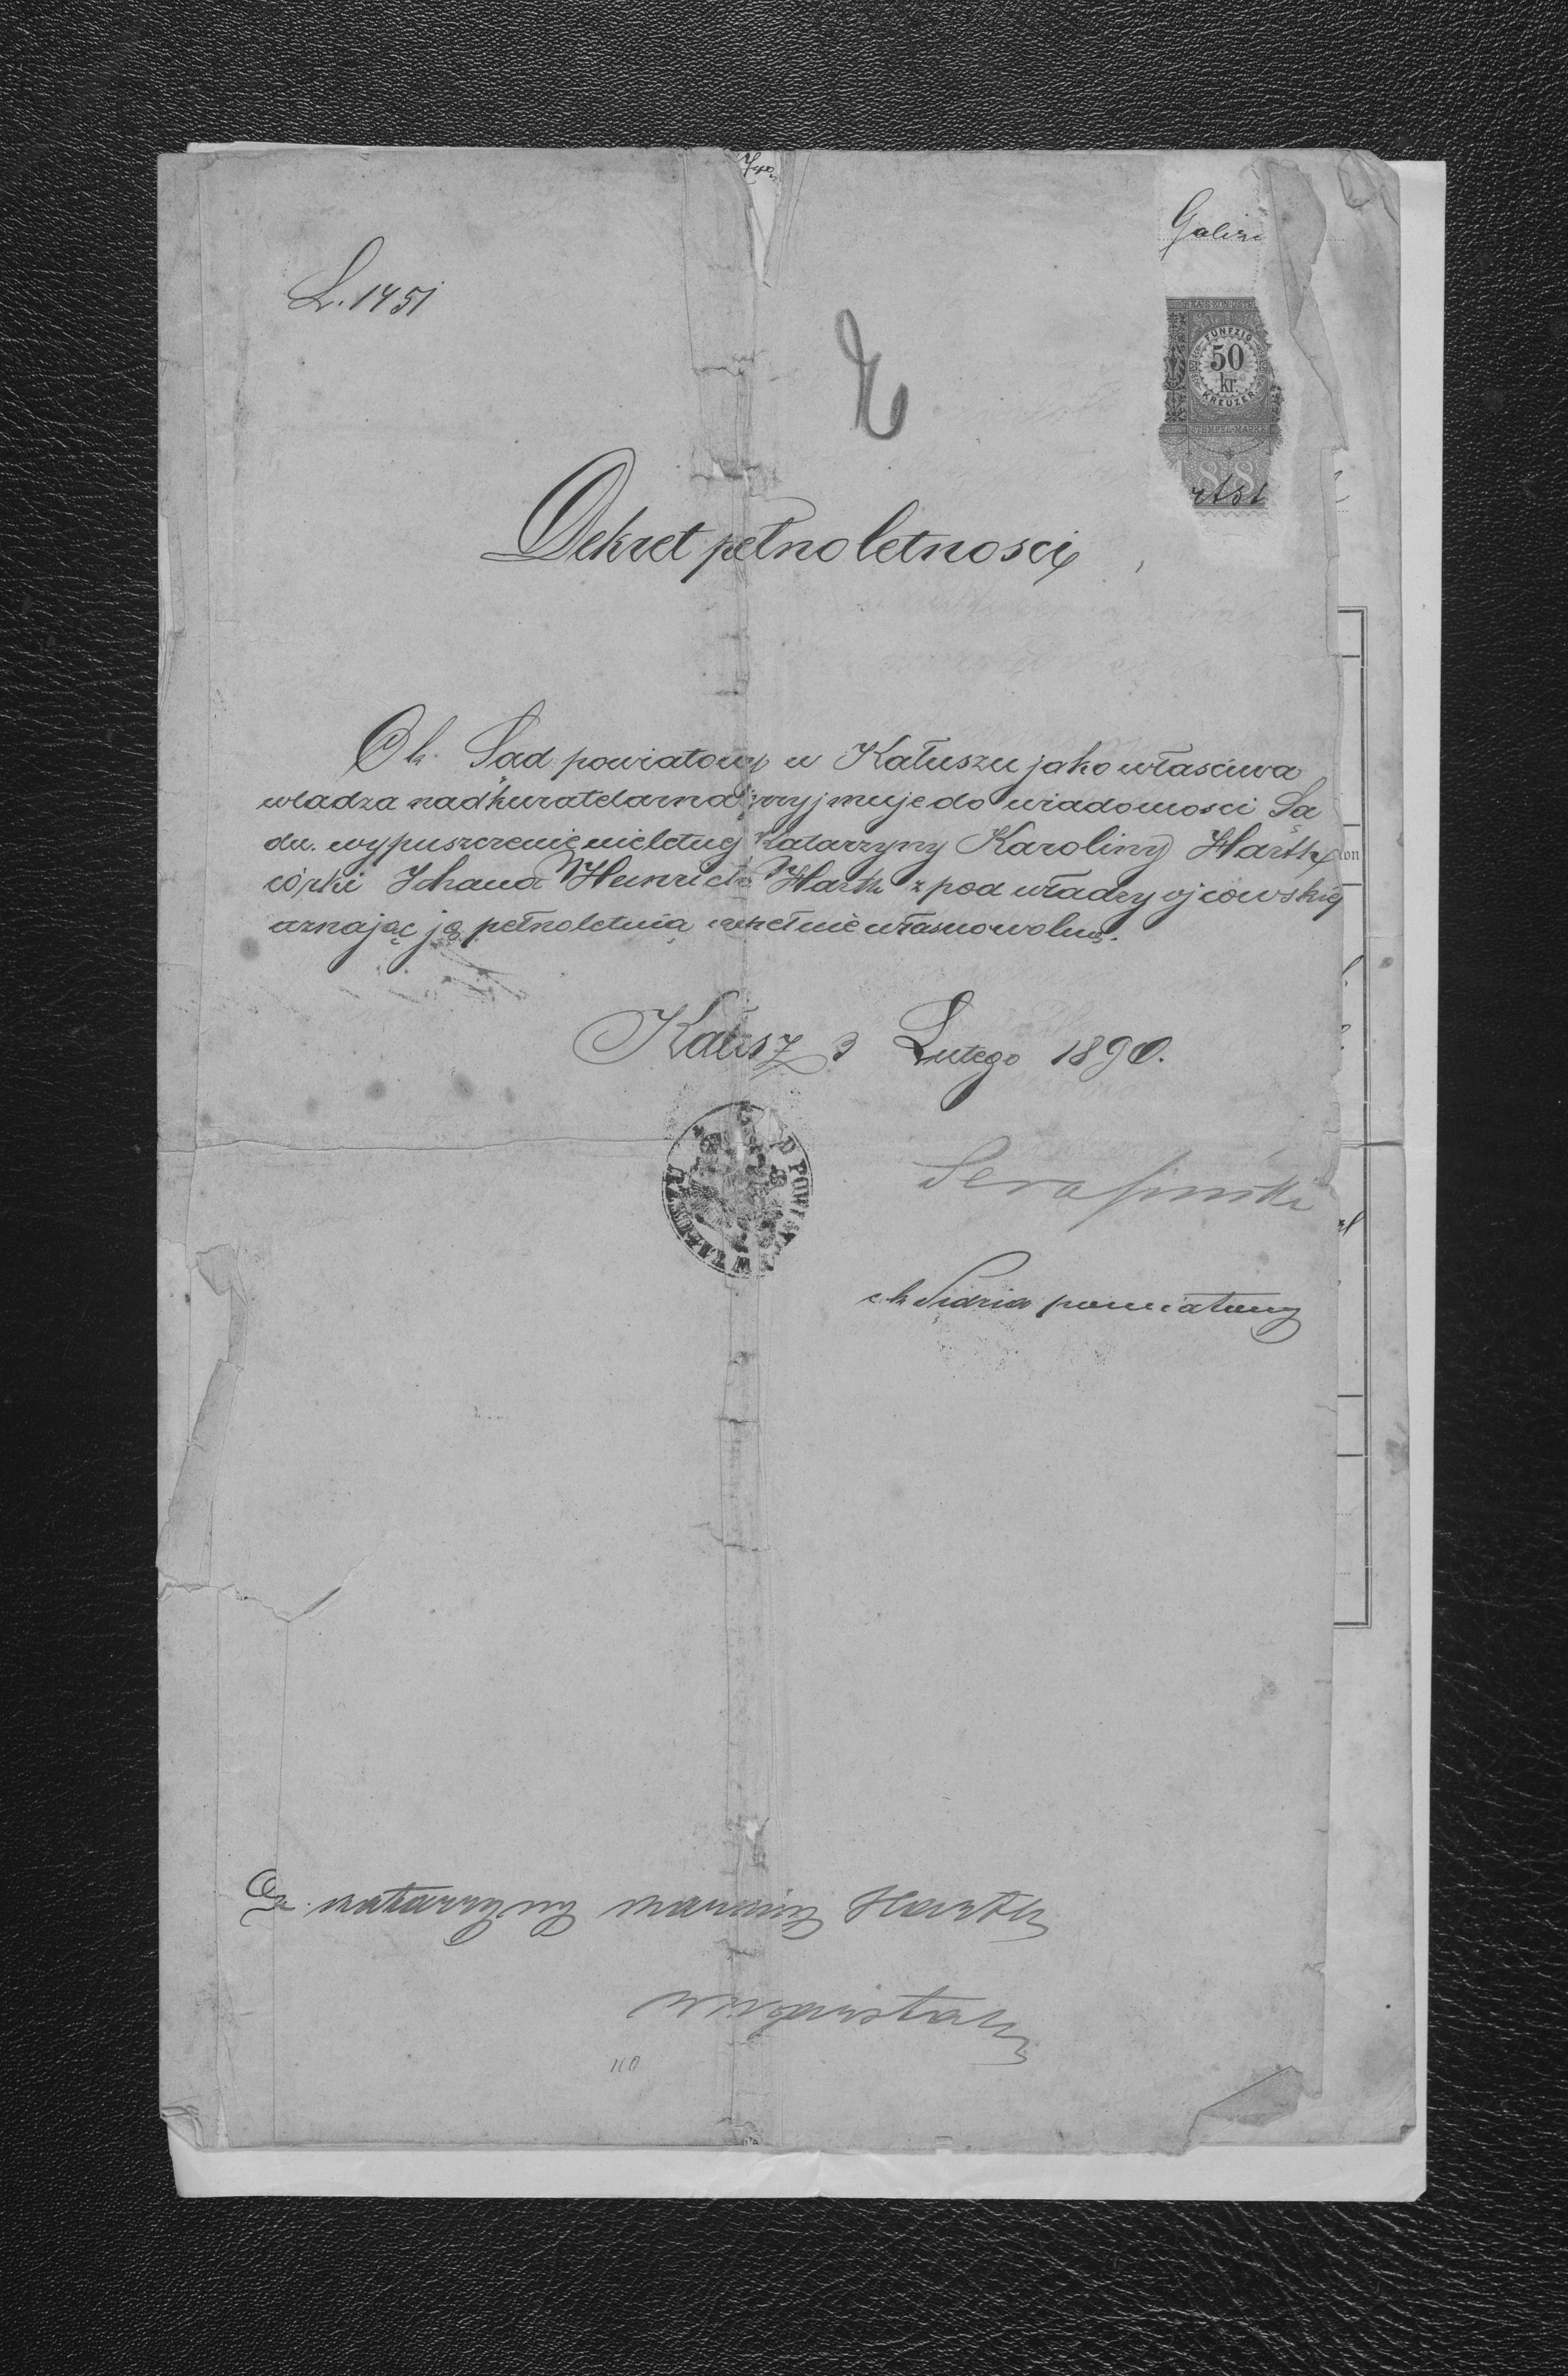 Galizi
L. 1451
KAIS. KÖN. ÖSTR.
FÜNFZIG
50
kr.
KREUZER
STEMPEL-MARKE
88
Dekret pełnoletności
C k. Sąd powiatowy w Kałuszu jako właściwa
władza nadkuratelarna przyjmuje do wiadomości Są
du. wypuszczenie nieletniej Katarzyny Karoliny Hartk
córki Johana Heinricha Hartk z pod władzy ojcowskiej
uznając ją pełnoletnią zupełnie własnowolną.
Kałusz 3 Lutego 1890.
D POWIAT W KAŁUSZU
Serafiński
c k Sędzia powiatowy
Katarzyny Hartk
110